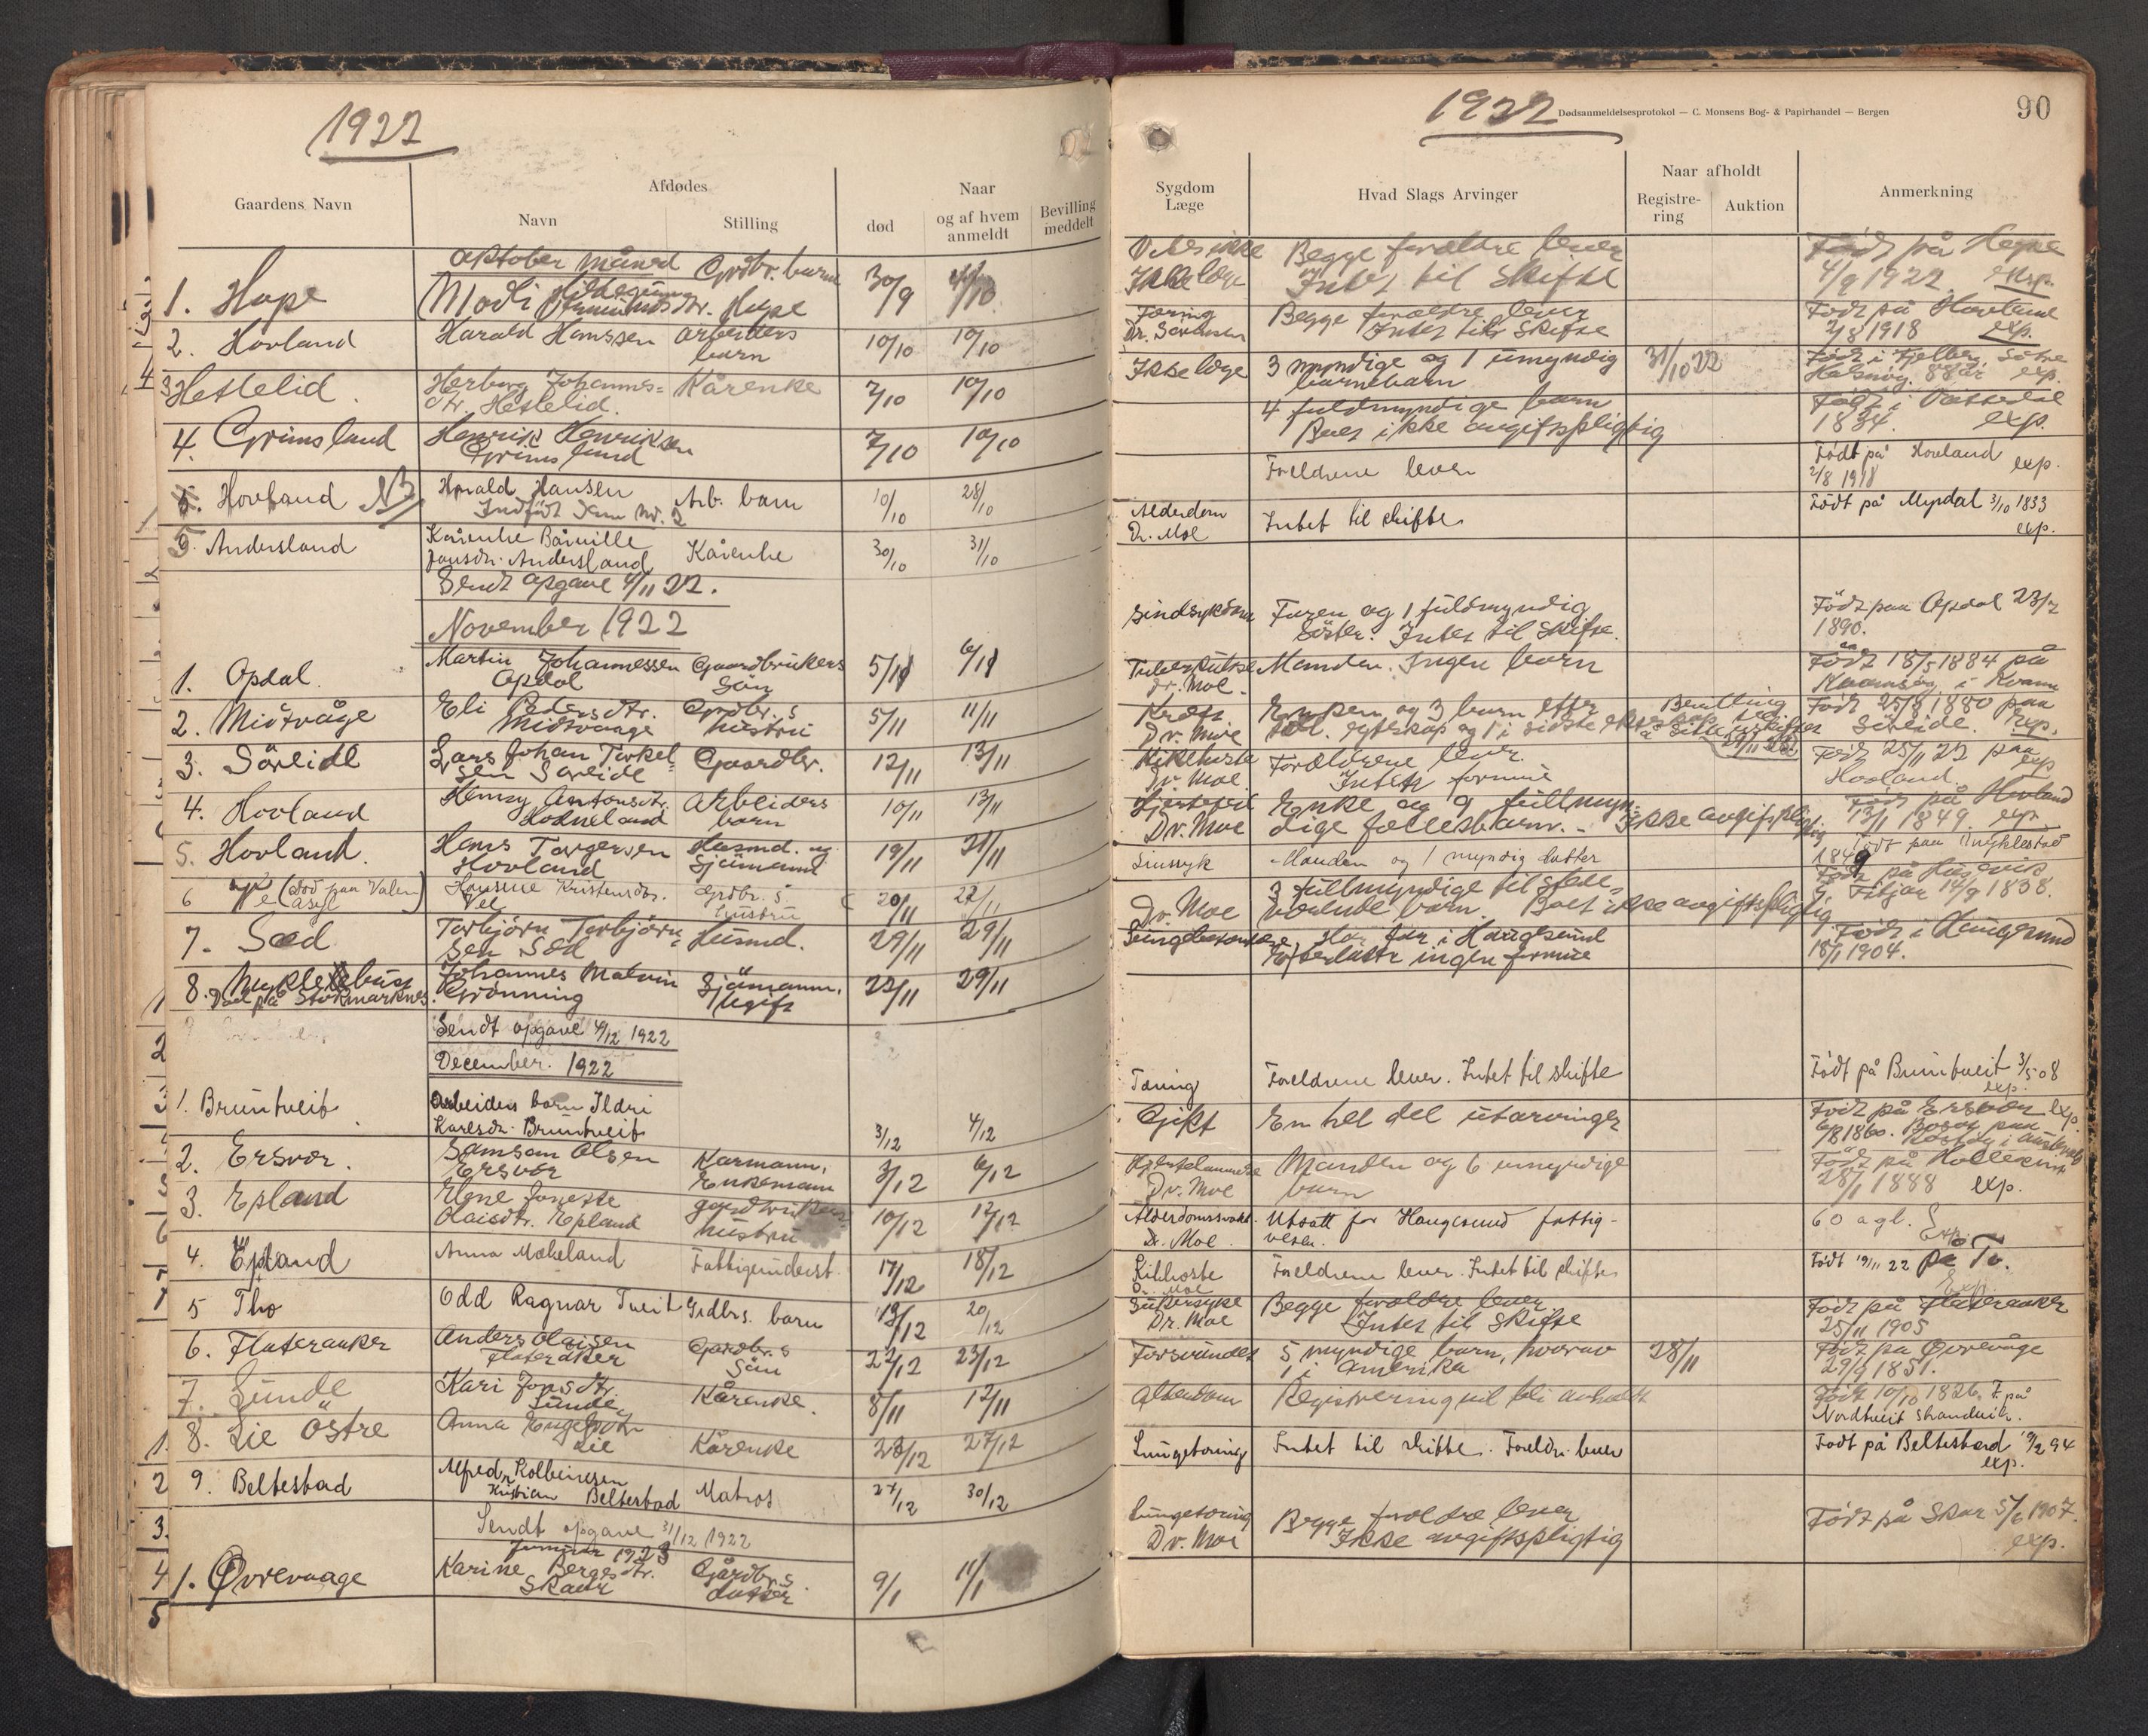 1922
Gaardens Navn
Afdødes
Navn
Stilling
Naar
død
og af hvem
anmeldt
Bevilling
meddelt
Oktober måned
1. Hope
Modi
Grdbr. barn
30/9
2. Hovland
Harald Hanssen
arbeiders
barn
10/10
10/10
3 Hestelid.
Herborg Johannes=
dtr. Hestelid.
Kårenke
7/10
10/10
4. Grimsland
Henrik Henriksen
Grimsland
7/10
10/10
Hovland NB
Harald Hansen
Indført Som Nr. 2
Arb. barn
10/10
28/10
5. Andersland
Kårenke
Jonsdr. Andersland
Kårenke
30/10
31/10
Sendt opgave 4/11 22.
November 1922
1. Opdal.
Martin Johannessen
Opdal
Gaardbrukers
Sön
5/11
6/11
2. Midtvåge
Eli Pedersdtr.
Midtvaage
Grdbr. s
hustru
5/11
11/11
3. Söreide
Lars Johan Torkel=
sen Söreide
Gaardbr.
12/11
13/11
4. Hovland
Henny Antonsdtr.
Hovland
Arbeiders
barn
10/11
13/11
5. Hovland.
Hans Torgersen
Hovland
Husmd. og
Sjömann
19/11
21/11
6 (död paa Valen
asyl)
Kristensdtr.
Grdbr. s
hustru
20/11
22/11
7. Sæd
Torbjörn Torbjörn=
sen Sæd
Husmd.
29/11
29/11
8. Myklebust
Död på Stokmarknes.
Johannes Malvin
Grönning
Sjömann,
Ugift
22/11
29/11
Sendt opgave 4/12 1922
December. 1922
1. Bruntveit
Arbeiders barn Ildri
Karlsdr. Bruntveit
3/12
4/12
2. Ersvær.
Samson Olsen
Ersvær
Kårmann,
Enkemann
3/12
6/12
3. Epland
Olaisdtr. Epland
hustru
10/12
12/12
4. Epland
Anna Mækeland
Fattigunderst.
17/12
18/12
5 Tho
Odd Ragnar Tveit
Grdbrs. barn
13/12
20/12
6. Flateraaker
Anders Olaisen
Flateråker
Gardbr. s
Sön
22/12
23/12
7. Sunde
Kari Jonsdtr.
Sunde
Kårenke.
8/11
12/11
8. Lie Östre
Anna Engelsdtr.
Lie
Kårenke
23/12
27/12
9. Beltestad
Alfred Kolbeinsen
Kristian Beltestad
Matros
27/12
30/12
Sendt opgave 31/12 1922
Januar 1923
1. Øvrevaage
Karine Bergesdtr.
Skaar
Gårdbr. s
datter
9/1
11/1
1922
Dødsanmeldelsesprotokol — C. Monsens Bog- & Papirhandel — Bergen
90
Sygdom
Læge
Hvad Slags Arvinger
Naar afholdt
Registre-
ring
Auktion
Anmerkning
Vites ikke
Ikke læge
Begge forældre lever
Intet til Skifte
Født på Hope
4/9 1922. exp.
Tæring
Dr. Sørensen
Begge forældre lever
Intet til Skifte
Født på Hovland
2/8 1918 exp.
Ikke læge
3 myndige og 1 umyndig
barnebarn
31/10 22
Født i Fjelberg
Halsnöy. 88 år exp.
4 fuldmyndige barn
Boet ikke avgiftspligtig
Født i
1834. exp.
Foreldrene lever
Født på Hovland
2/8 1918 exp.
Alderdom
Dr. Moe
Intet til skifte
Født på Mypdal 3/10 1833
exp.
Sindsykdom
Faren og 1 fuldmyndig
Söster. Intet til Skifte.
Född paa Opdal 23/2
1890.
Tuberkulose
Dr. Moe.
Manden. Ingen barn
Född 18/5 1884 på
i Kvam
Kræft
Dr. Moe
Enken og 3 barn efter
ekteskap og 1 i sidste
Bevilling
Född 25/8 1880 paa
Söreide. exp.
Kikhoste
Dr. Moe
Forældrene lever.
Intet formue
Född 25/11 22 paa
Hovland. exp
Hjertefeil
Dr. Moe
Enke og 9 fullmyn=
dige fællesbarn. - Ikke avgiftspligtig
Född på Hovland
13/1 1849 exp.
Sinssyk
Manden og 1 myndig datter
Födt paa Myklestad
1849
Dr. Moe
3 fullmyndige tilstede=
værende barn. Boet ikke avgiftspligtig
Född på
Fitjar 14/9 1838.
Lungebetændelse
Har far i Haugesund
Efterlatt ingen formue
Född i Haugesund
18/1 1904.
Tæring
Foreldrene lever. Intet til skifte
Födt på Bruntveit 3/5 08
exp.
Gikt
En hel del utarvinger
Född på Ersvær exp.
6/8 1860.
Dr. Moe
Manden og 6 umyndige
barn
Född på
28/1 1888 exp.
Dr. Moe
Utsatt for Haugesund fattig-
vesen.
60 a gl.
exp.
Kikhoste
Foreldrene lever. Intet til skifte
Födt 19/11 22 på To.
Sukersyke
Dr. Moe
Begge forældre lever
Intet til Skifte
Född på Flateraaker
25/11 1905
Forsvundet
5 myndige barn, hvorav
1 i Amerika
28/11
Född på Övrevåge
29/9 1851.
Alderdom
Registrering vil bli avholdt
Född 10/10 1826. på
Nordtveit Strandvik.
Lungetæring
Intet til skifte. Foreldr. lever
Født på Beltestad 19/2 94
exp.
Lungetæring
Dr. Moe
Begge forældre lever
Ikke avgiftspligtig
Född på Skar 5/6 1907.
exp.